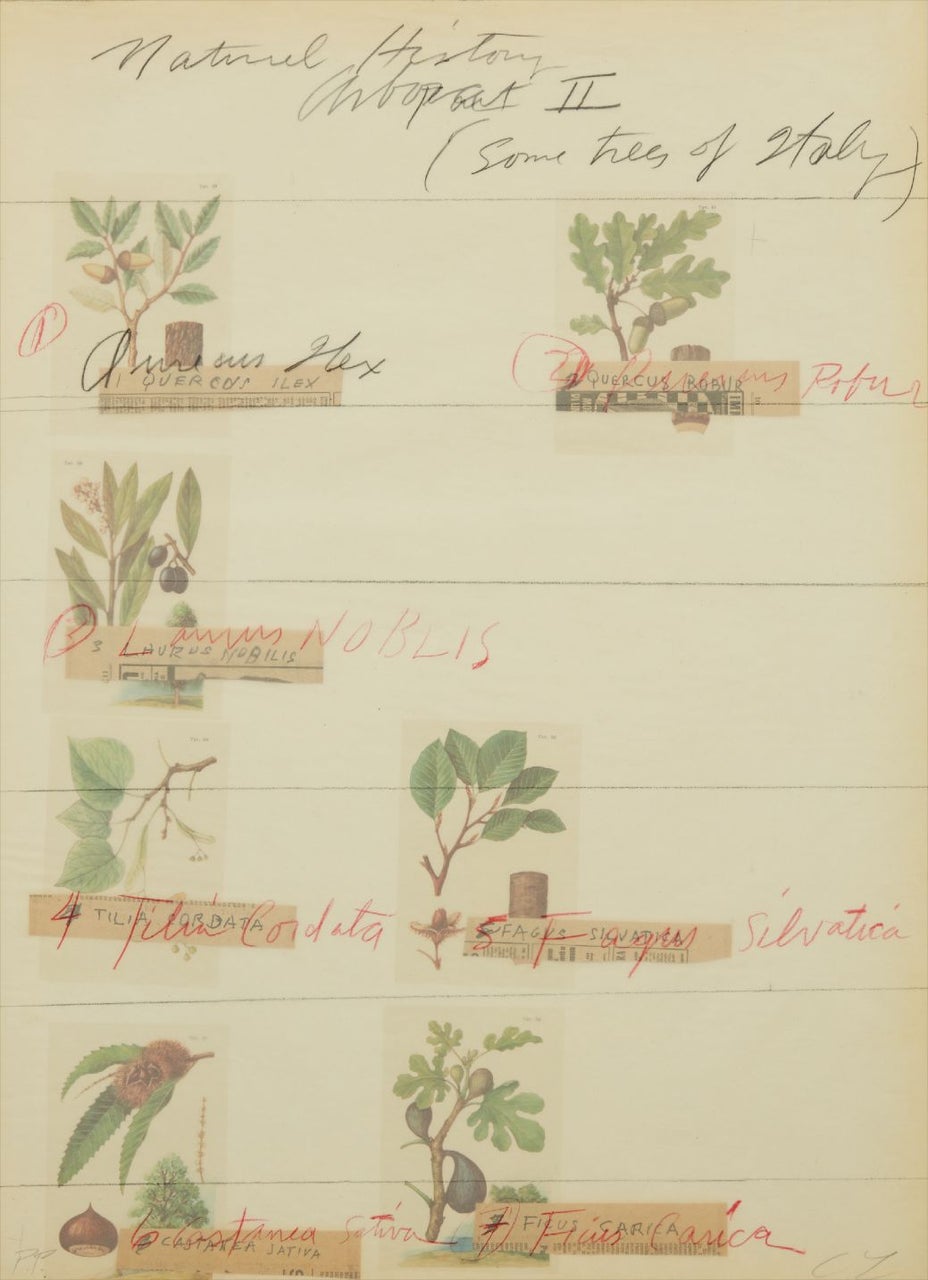 Natural History
Part II
(Some trees of Italy)
1
Quercus Ilex
1 QUERCUS ILEX
2
Quercus Robur
QUERCUS ROBUR
3
Laurus NOBLIS
3 LAURUS NOBILIS
4 Tilia Cordata
TILIA CORDATA
5 Fagus Silvatica
FAGUS SILVATICA
6 Castanea Sativa
CASTANEA SATIVA
7 Ficus Carica
FICUS CARICA
P.P.
CT